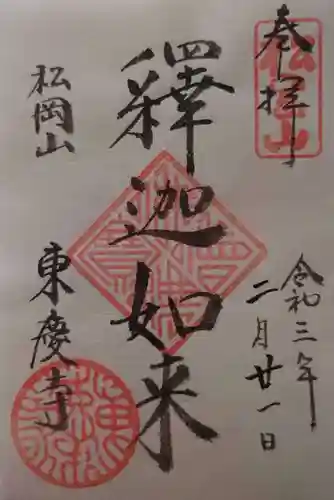 奉拝
松岡山
令和三年
二月廿一日
釋迦如来
松岡山
東慶寺